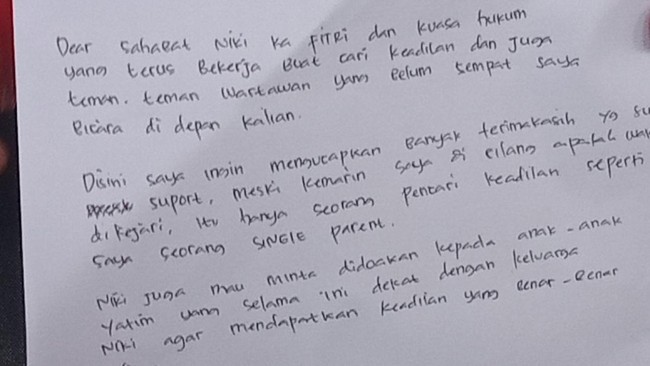 Dear Sahabat Niki Ka FITRI dan Kuasa hukum
yang terus Bekerja Buat cari Keadilan dan Juga
teman-teman Wartawan yang Belum sempat saya
Bicara di depan Kalian.
Disini saya ingin mengucapkan Banyak terimakasih yg su
suport, meski Kemarin saya di Bilang apakah wa
di Kejari, itu hanya seorang pencari Keadilan seperti
saya seorang SINGLE parent.
Niki Juga mau minta didoakan Kepada anak-anak
Yatim yang selama ini dekat dengan Keluarga
Niki agar mendapatkan Keadilan yang Benar-Benar